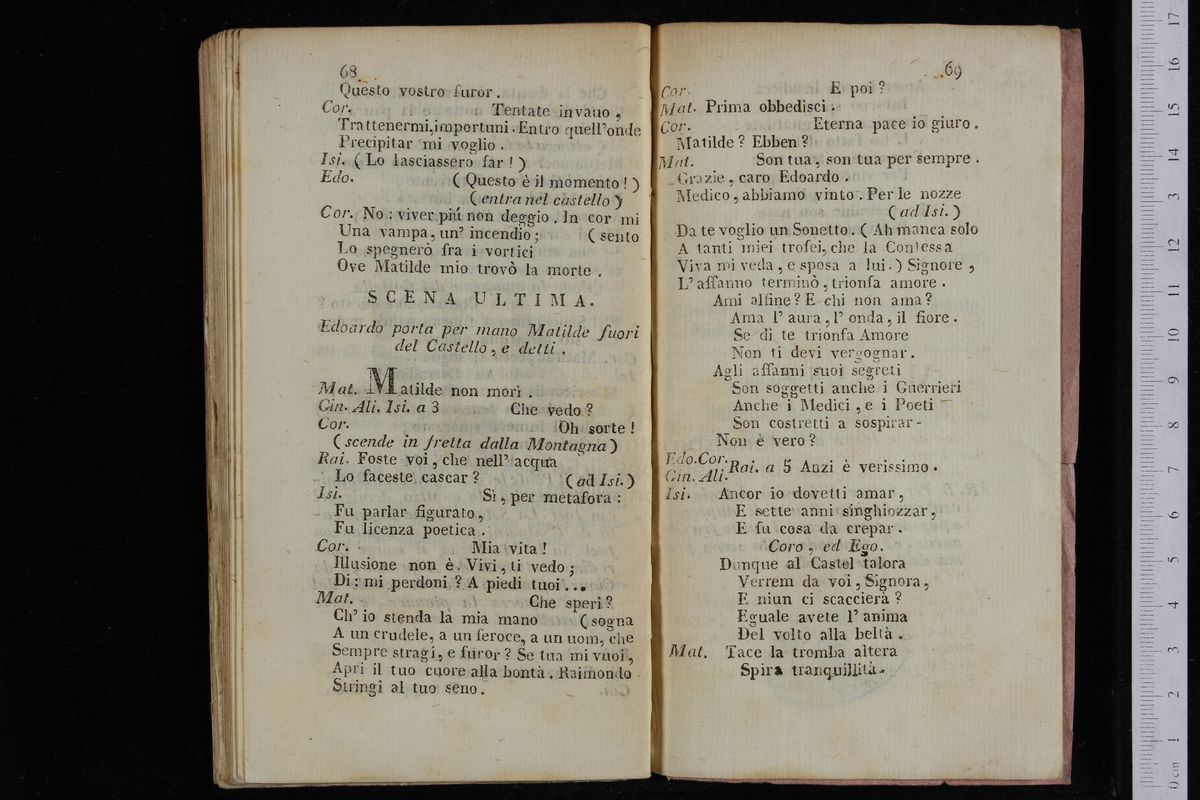 68
Questo vostro furor.
Cor. Tentate invano,
Trattenermi, importuni. Entro quell'onde
Precipitar mi voglio.
Isi. (Lo lasciassero far!)
Edo. (Questo è il momento!)
(entra nel castello)
Cor. No: viver piú non deggio. In cor mi
Una vampa, un' incendio; (sento
Lo spegnerò fra i vortici
Ove Matilde mio trovò la morte.
SCENA ULTIMA.
Edoardo porta per mano Matilde fuori
del Castello, e detti.
Mat. Matilde non morì.
Gin. Ali. Isi. a 3 Che vedo?
Cor. Oh sorte!
(scende in fretta dalla Montagna)
Rai. Foste voi, che nell' acqua
Lo faceste cascar? (ad Isi.)
Isi. Si, per metafora:
Fu parlar figurato,
Fu licenza poetica.
Cor. Mia vita!
Illusione non è. Vivi, ti vedo;
Di: mi perdoni? A piedi tuoi...
Mat. Che speri?
Ch' io stenda la mia mano (sogna
A un crudele, a un feroce, a un uom, che
Sempre stragi, e furor? Se tua mi vuoi,
Apri il tuo cuore alla bontà. Raimondo
Stringi al tuo seno.
69
Cor. E poi?
Mat. Prima obbedisci.
Cor. Eterna pace io giuro.
Matilde? Ebben?
Mat. Son tua, son tua per sempre.
Grazie, caro Edoardo.
Medico, abbiamo vinto. Per le nozze
(ad Isi.)
Da te voglio un Sonetto. (Ah manca solo
A tanti miei trofei, che la Contessa
Viva mi veda, e sposa a lui.) Signore,
L' affanno terminò, trionfa amore.
Ami alfine? E chi non ama?
Ama l' aura, l' onda, il fiore.
Se di te trionfa Amore
Non ti devi vergognar.
Agli affanni suoi segreti
Son soggetti anche i Guerrieri
Anche i Medici, e i Poeti
Son costretti a sospirar-
Non è vero?
Edo. Cor.
Gin. Ali. Rai. a 5 Anzi è verissimo.
Isi. Ancor io dovetti amar,
E sette anni singhiozzar,
E fu cosa da crepar.
Coro, ed Ego.
Dunque al Castel talora
Verrem da voi, Signora,
E niun ci scaccierà?
Eguale avete l' anima
Del volto alla beltà.
Mat. Tace la tromba altera
Spira tranquillità.
17
16
15
14
13
12
11
10
9
8
7
6
5
4
3
2
1
0 cm